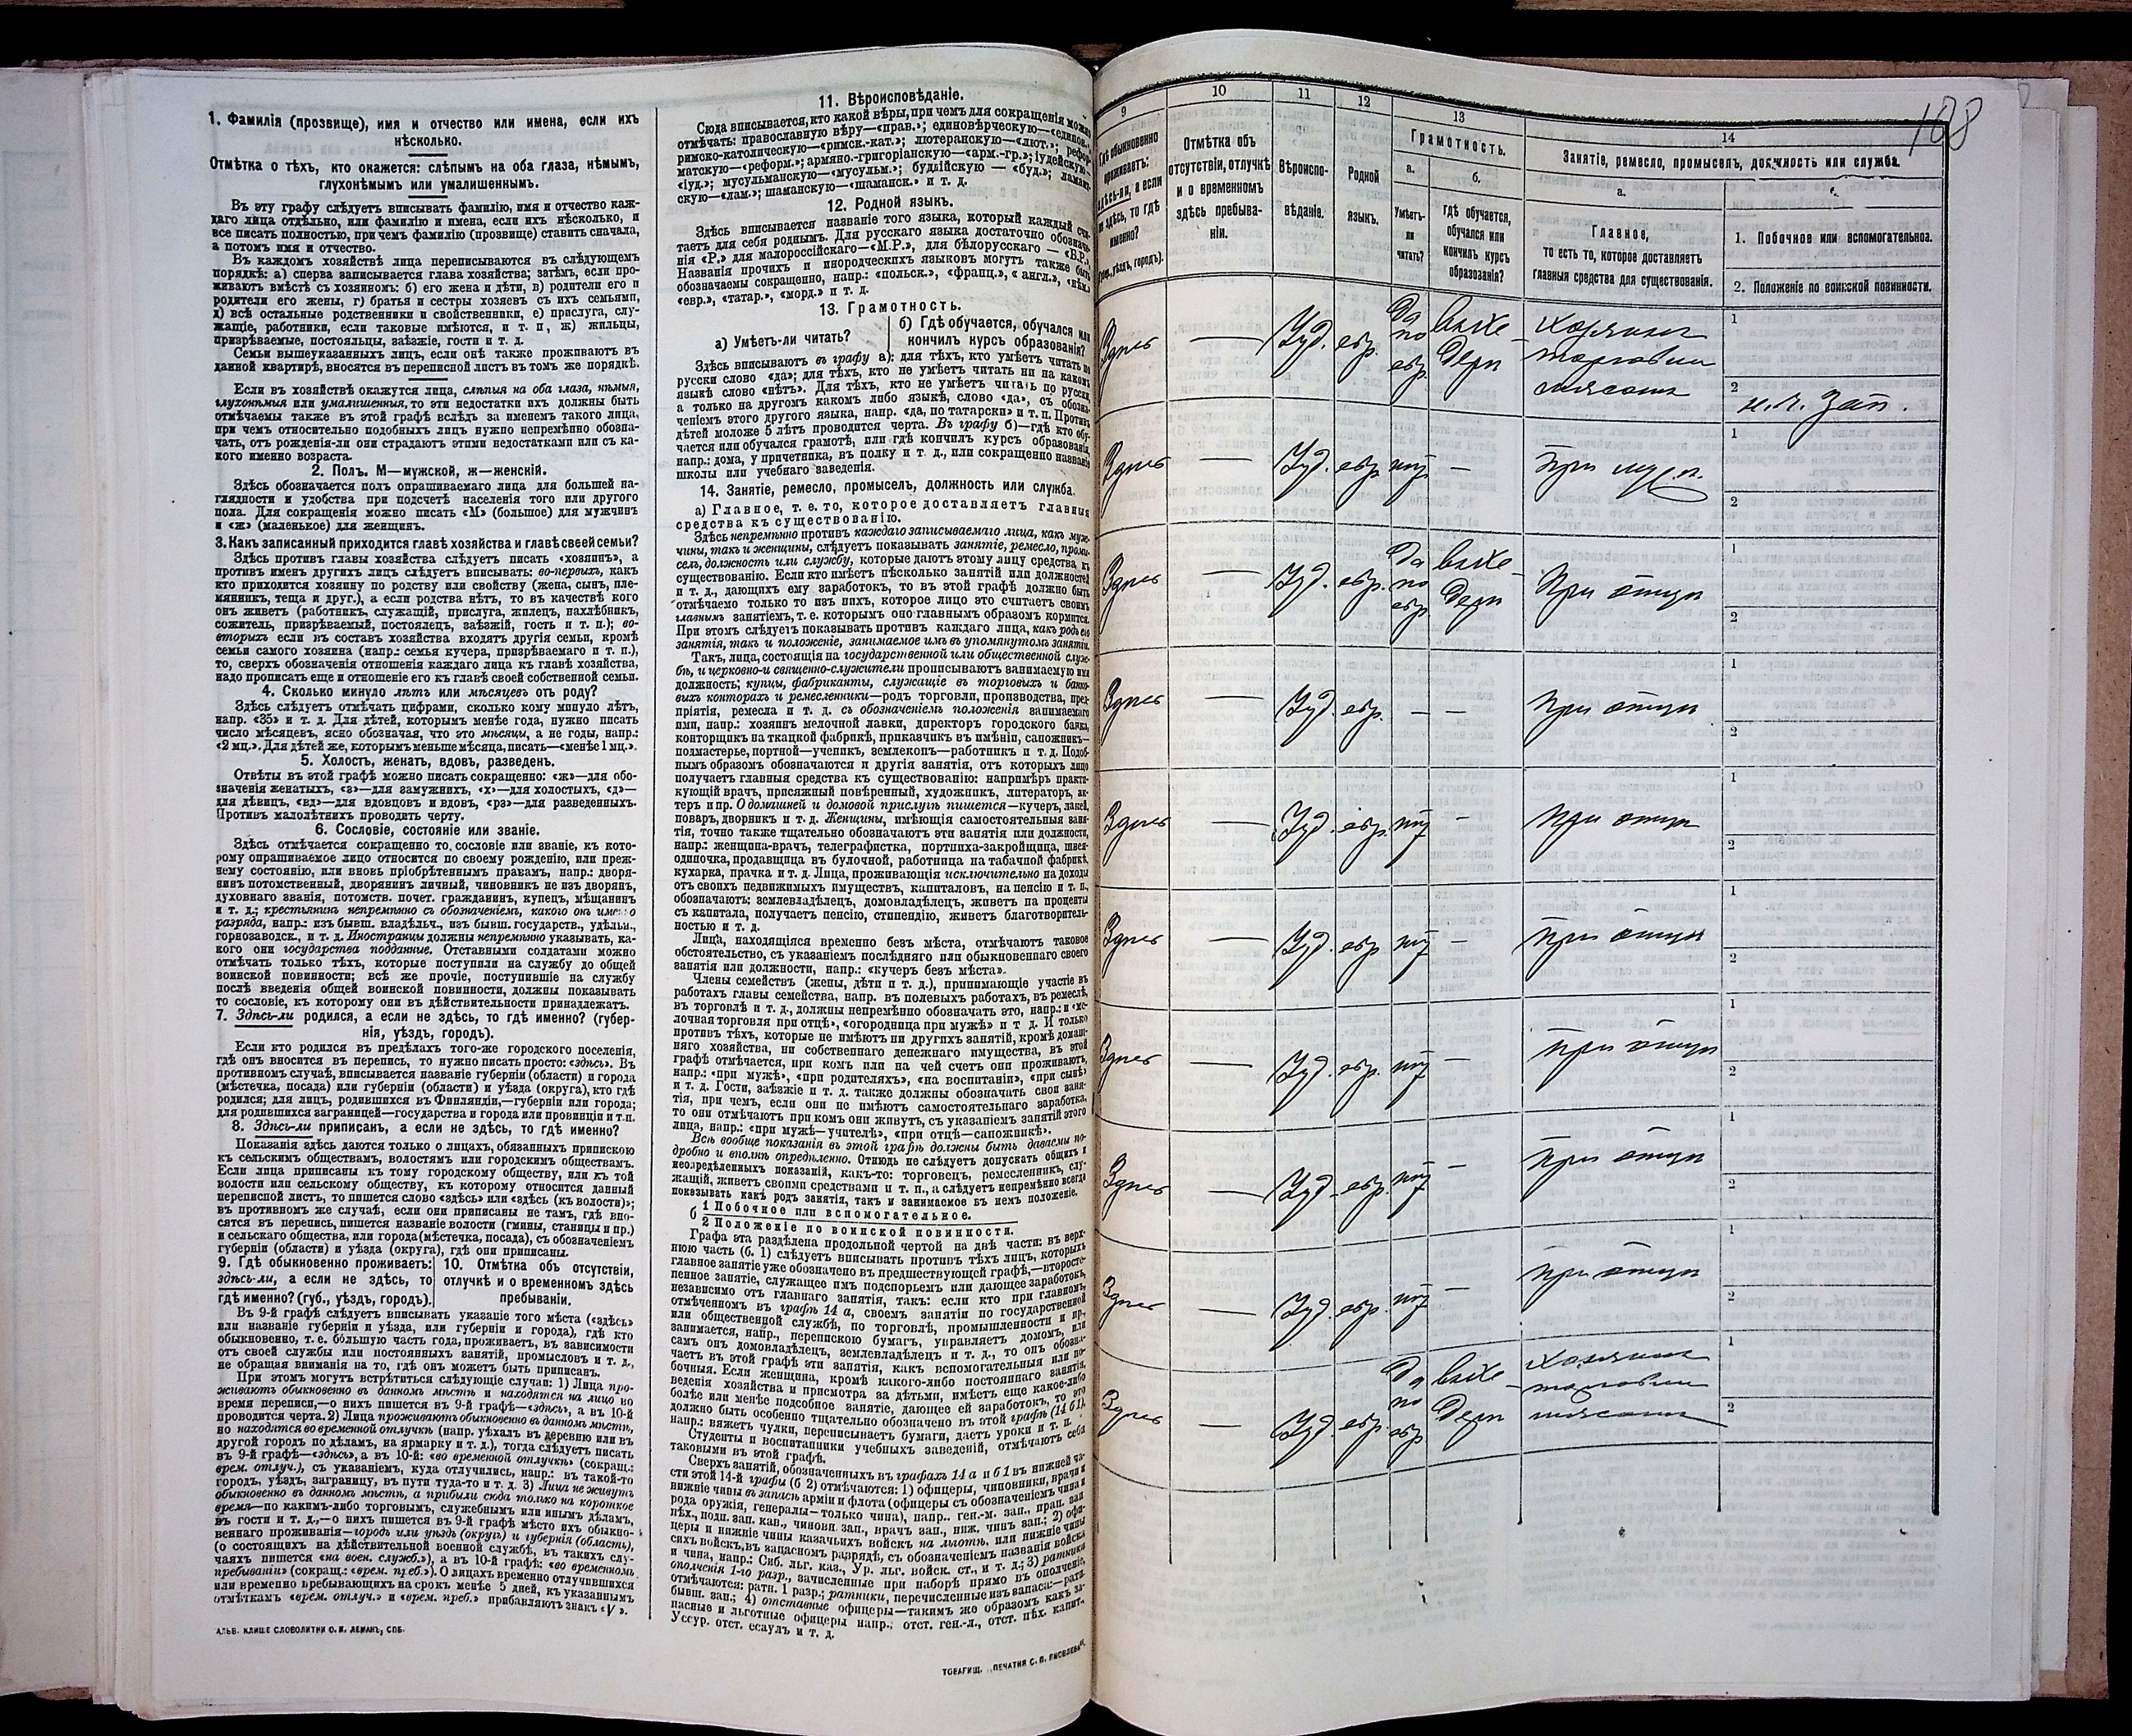 1. Фамилія (прозвище), имя и отчество или имена, если ихъ
нѣсколько.
Отмѣтка о тѣхъ, кто окажется: слѣпымъ на оба глаза, нѣмымъ,
глухонѣмымъ или умалишеннымъ.
Въ эту графу слѣдуетъ вписывать фамилію, имя и отчество каж-
даго лица отдѣльно, или фамилію и имена, если ихъ нѣсколько, и
все писать полностью, при чемъ фамилію (прозвище) ставить сначала,
а потомъ имя и отчество.
Въ каждомъ хозяйствѣ лица переписываются въ слѣдующемъ
порядкѣ: а) сперва записывается глава хозяйства; затѣмъ, если про-
живаютъ вмѣстѣ съ хозяиномъ: б) его жена и дѣти, в) родители его и
родители его жены, г) братья и сестры хозяевъ съ ихъ семьями,
д) всѣ остальные родственники и свойственники, е) прислуга, слу-
жащіе, работники, если таковые имѣются, и т. п, ж) жильцы,
призрѣваемые, постояльцы, заѣзжіе, гости и т. д.
Семьи вышеуказанныхъ лицъ, если онѣ также проживаютъ въ
данной квартирѣ, вносятся въ переписной листъ въ томъ же порядкѣ.
Если въ хозяйствѣ окажутся лица, слѣпыя на оба глаза, нѣмыя,
глухонѣмыя или умалишенныя, то эти недостатки ихъ должны быть
отмѣчаемы также въ этой графѣ вслѣдъ за именемъ такого лица,
при чемъ относительно подобныхъ лицъ нужно непремѣнно обозна-
чать, отъ рожденія-ли они страдаютъ этими недостатками или съ ка-
кого именно возраста.
2. Полъ. М—мужской, ж—женскій.
Здѣсь обозначается полъ опрашиваемаго лица для большей на-
глядности и удобства при подсчетѣ населенія того или другого
пола. Для сокращенія можно писать «М» (большое) для мужчинъ
и «ж» (маленькое) для женщинъ.
3. Какъ записанный приходится главѣ хозяйства и главѣ своей семьи?
Здѣсь противъ главы хозяйства слѣдуетъ писать «хозяинъ», а
противъ именъ другихъ лицъ слѣдуетъ вписывать: во-первыхъ, какъ
кто приходится хозяину по родству или свойству (жена, сынъ, пле-
мянникъ, теща и друг.), а если родства нѣтъ, то въ качествѣ кого
онъ живетъ (работникъ, служащій, прислуга, жилецъ, нахлѣбникъ,
сожитель, призрѣваемый, постоялецъ, заѣзжій, гость и т. п.); во-
вторыхъ если въ составъ хозяйства входятъ другія семьи, кромѣ
семьи самого хозяина (напр.: семья кучера, призрѣваемаго и т. п.),
то, сверхъ обозначенія отношенія каждаго лица къ главѣ хозяйства,
надо прописать еще и отношеніе его къ главѣ своей собственной семьи.
4. Сколько минуло лѣтъ или мѣсяцевъ отъ роду?
Здѣсь слѣдуетъ отмѣчать цифрами, сколько кому минуло лѣтъ,
напр. «35» и т. д. Для дѣтей, которымъ менѣе года, нужно писать
число мѣсяцевъ, ясно обозначая, что это мѣсяцы, а не годы, напр.:
«2 мц.». Для дѣтей же, которымъ меньше мѣсяца, писать—«менѣе 1 мц.».
5. Холостъ, женатъ, вдовъ, разведенъ.
Отвѣты въ этой графѣ можно писать сокращенно: «ж»—для обо-
значенія женатыхъ, «з»—для замужнихъ, «х»—для холостыхъ, «д»—
для дѣвицъ, «вд»—для вдовцовъ и вдовъ, «рз»—для разведенныхъ.
Противъ малолѣтнихъ проводить черту.
6. Сословіе, состояніе или званіе.
Здѣсь отмѣчается сокращенно то, сословіе или званіе, къ кото-
рому опрашиваемое лицо относится по своему рожденію, или преж-
нему состоянію, или вновь пріобрѣтеннымъ правамъ, напр.: дворя-
нинъ потомственный, дворянинъ личный, чиновникъ не изъ дворянъ,
духовнаго званія, потомств. почет. гражданинъ, купецъ, мѣщанинъ
и т. д.; крестьянинъ непремѣнно съ обозначеніемъ, какого онъ именно
разряда, напр.: изъ бывш. владѣльч., изъ бывш. государств., удѣльн.,
горнозаводск., и т. д. Иностранцы должны непремѣнно указывать, ка-
кого они государства подданные. Отставными солдатами можно
отмѣчать только тѣхъ, которые поступили на службу до общей
воинской повинности; всѣ же прочіе, поступившіе на службу
послѣ введенія общей воинской повинности, должны показывать
то сословіе, къ которому они въ дѣйствительности принадлежатъ.
7. Здѣсь-ли родился, а если не здѣсь, то гдѣ именно? (губер-
нія, уѣздъ, городъ).
Если кто родился въ предѣлахъ того-же городского поселенія,
гдѣ онъ вносится въ перепись, то нужно писать просто: «здѣсь». Въ
противномъ случаѣ, вписывается названіе губерніи (области) и города
(мѣстечка, посада) или губерніи (области) и уѣзда (округа), кто гдѣ
родился; для лицъ, родившихся въ Финляндіи,—губерніи или города;
для родившихся заграницей—государства и города или провинціи и т.п.
8. Здѣсь-ли приписанъ, а если не здѣсь, то гдѣ именно?
Показанія здѣсь даются только о лицахъ, обязанныхъ припискою
къ сельскимъ обществамъ, волостямъ или городскимъ обществамъ.
Если лица приписаны къ тому городскому обществу, или къ той
волости или сельскому обществу, къ которому относится данный
переписной листъ, то пишется слово «здѣсь» или «здѣсь (къ волости)»;
въ противномъ же случаѣ, если они приписаны не тамъ, гдѣ вно-
сятся въ перепись, пишется названіе волости (гмины, станицы и пр.)
и сельскаго общества, или города (мѣстечка, посада), съ обозначеніемъ
губерніи (области) и уѣзда (округа), гдѣ они приписаны.
9. Гдѣ обыкновенно проживаетъ:
здѣсь-ли, а если не здѣсь, то
гдѣ именно? (губ., уѣздъ, городъ).
10. Отмѣтка объ отсутствіи,
отлучкѣ и о временномъ здѣсь
пребываніи.
Въ 9-й графѣ слѣдуетъ вписывать указаніе того мѣста («здѣсь»
или названіе губерніи и уѣзда, или губерніи и города), гдѣ кто
обыкновенно, т. е. бо́льшую часть года, проживаетъ, въ зависимости
отъ своей службы или постоянныхъ занятій, промысловъ и т. д.,
не обращая вниманія на то, гдѣ онъ можетъ быть приписанъ.
При этомъ могутъ встрѣтиться слѣдующіе случаи: 1) Лица про-
живаютъ обыкновенно въ данномъ мѣстѣ и находятся на лицо во
время переписи,—о нихъ пишется въ 9-й графѣ—«здѣсь», а въ 10-й
проводится черта. 2) Лица проживаютъ обыкновенно въ данномъ мѣстѣ,
но находятся во временной отлучкѣ (напр. уѣхалъ въ деревню или въ
другой городъ по дѣламъ, на ярмарку и т. д.), тогда слѣдуетъ писать
въ 9-й графѣ—«здѣсь», а въ 10-й: «во временной отлучкѣ» (сокращ.:
врем. отлуч.), съ указаніемъ, куда отлучились, напр.: въ такой-то
городъ, уѣздъ, заграницу, въ пути туда-то и т. д. 3) Лица не живутъ
обыкновенно въ данномъ мѣстѣ, а прибыли сюда только на короткое
время—по какимъ-либо торговымъ, служебнымъ или инымъ дѣламъ,
въ гости и т. д.,—о нихъ пишется въ 9-й графѣ мѣсто ихъ обыкно-
веннаго проживанія—городъ или уѣздъ (округъ) и губернія (область),
(о состоящихъ на дѣйствительной военной службѣ, въ такихъ слу-
чаяхъ пишется «на воен. служб.»), а въ 10-й графѣ: «во временномъ
пребываніи» (сокращ.: «врем. преб.»). О лицахъ временно отлучившихся
или временно пребывающихъ на срокъ менѣе 5 дней, къ указаннымъ
отмѣткамъ «врем. отлуч.» и «врем. преб.» прибавляютъ знакъ «V».
АЛЬВ. КЛИШЕ СЛОВОЛИТНИ О. И. ЛЕМАНЪ, СПБ.
11. Вѣроисповѣданіе.
Сюда вписывается, кто какой вѣры, при чемъ для сокращенія можно
отмѣчать: православную вѣру—«прав.»; единовѣрческую—«единов.»
римско-католическую—«римск.-кат.»; лютеранскую—«лют.»; рефор-
матскую—«реформ.»; армяно-григоріанскую—«арм.-гр.»; іудейскую—
«іуд.»; мусульманскую—«мусульм.»; буддійскую — «буд.»; ламай-
скую—«лам.»; шаманскую—«шаманск.» и т. д.
12. Родной языкъ.
Здѣсь вписывается названіе того языка, который каждый счи-
таетъ для себя роднымъ. Для русскаго языка достаточно обозначе-
нія «Р.» для малороссійскаго—«М.Р.», для бѣлорусскаго — «Б.Р.».
Названія прочихъ и инородческихъ языковъ могутъ также быть
обозначаемы сокращенно, напр.: «польск.», «франц.», «англ.», «нѣм.»
«евр.», «татар.», «морд.» и т. д.
13. Грамотность.
а) Умѣетъ-ли читать?
б) Гдѣ обучается, обучался или
кончилъ курсъ образованія?
Здѣсь вписываютъ въ графу а): для тѣхъ, кто умѣетъ читать по
русски слово «да»; для тѣхъ, кто не умѣетъ читать ни на какомъ
языкѣ слово «нѣтъ». Для тѣхъ, кто не умѣетъ читать по русски,
а только на другомъ какомъ либо языкѣ, слово «да», съ обозна-
ченіемъ этого другого языка, напр. «да, по татарски» и т. п. Противъ
дѣтей моложе 5 лѣтъ проводится черта. Въ графу б)—гдѣ кто обу-
чается или обучался грамотѣ, или гдѣ кончилъ курсъ образованія,
напр.: дома, у причетника, въ полку и т. д., или сокращенно названіе
школы или учебнаго заведенія.
14. Занятіе, ремесло, промыселъ, должность или служба.
а) Главное, т. е. то, которое доставляетъ главныя
средства къ существованію.
Здѣсь непремѣнно противъ каждаго записываемаго лица, какъ муж-
чины, такъ и женщины, слѣдуетъ показывать занятіе, ремесло, промы-
селъ, должность или службу, которые даютъ этому лицу средства къ
существованію. Если кто имѣетъ нѣсколько занятій или должностей
и т. д., дающихъ ему заработокъ, то въ этой графѣ должно быть
отмѣчаемо только то изъ нихъ, которое лицо это считаетъ своимъ
главнымъ занятіемъ, т. е. которымъ оно главнымъ образомъ кормится.
При этомъ слѣдуетъ показывать противъ каждаго лица, какъ родъ его
занятія, такъ и положеніе, занимаемое имъ въ упомянутомъ занятіи.
Такъ, лица, состоящія на государственной или общественной служ-
бѣ, и церковно-и священно-служители прописываютъ занимаемую ими
должность; купцы, фабриканты, служащіе въ торговыхъ и банко-
выхъ конторахъ и ремесленники—родъ торговли, производства, пред-
пріятія, ремесла и т. д. съ обозначеніемъ положенія занимаемаго
ими, напр.: хозяинъ мелочной лавки, директоръ городского банка,
конторщикъ на ткацкой фабрикѣ, приказчикъ въ имѣніи, сапожникъ—
подмастерье, портной—ученикъ, землекопъ—работникъ и т. д. Подоб-
нымъ образомъ обозначаются и другія занятія, отъ которыхъ лицо
получаетъ главныя средства къ существованію: напримѣръ практи-
кующій врачъ, присяжный повѣренный, художникъ, литераторъ, ак-
теръ и пр. О домашней и домовой прислугѣ пишется—кучеръ, лакей,
поваръ, дворникъ и т. д. Женщины, имѣющія самостоятельныя заня-
тія, точно также тщательно обозначаютъ эти занятія или должности,
напр.: женщина-врачъ, телеграфистка, портниха-закройщица, швея-
одиночка, продавщица въ булочной, работница на табачной фабрикѣ,
кухарка, прачка и т. д. Лица, проживающія исключительно на доходы
отъ своихъ недвижимыхъ имуществъ, капиталовъ, на пенсію и т. п.,
обозначаютъ: землевладѣлецъ, домовладѣлецъ, живетъ на проценты
съ капитала, получаетъ пенсію, стипендію, живетъ благотворитель-
ностью и т. д.
Лица, находящіяся временно безъ мѣста, отмѣчаютъ таковое
обстоятельство, съ указаніемъ послѣдняго или обыкновеннаго своего
занятія или должности, напр.: «кучеръ безъ мѣста».
Члены семействъ (жены, дѣти и т. д.), принимающіе участіе въ
работахъ главы семейства, напр. въ полевыхъ работахъ, въ ремеслѣ,
въ торговлѣ и т. д., должны непремѣнно обозначать это, напр.: и «ме-
лочная торговля при отцѣ», «огородница при мужѣ» и т д. И только
противъ тѣхъ, которые не имѣютъ ни другихъ занятій, кромѣ домаш-
няго хозяйства, ни собственнаго денежнаго имущества, въ этой
графѣ отмѣчается, при комъ или на чей счетъ они проживаютъ,
напр.: «при мужѣ», «при родителяхъ», «на воспитаніи», «при сынѣ»
и т. д. Гости, заѣзжіе и т. д. также должны обозначать свои заня-
тія, при чемъ, если они не имѣютъ самостоятельнаго заработка,
то они отмѣчаютъ при комъ они живутъ, съ указаніемъ занятій этого
лица, напр.: «при мужѣ—учителѣ», «при отцѣ—сапожникѣ».
Всѣ вообще показанія въ этой графѣ должны быть даваемы по-
дробно и вполнѣ опредѣленно. Отнюдь не слѣдуетъ допускать общихъ и
неопредѣленныхъ показаній, какъ-то: торговецъ, ремесленникъ, слу-
жащій, живетъ своими средствами и т. п., а слѣдуетъ непремѣнно всегда
показывать какъ родъ занятія, такъ и занимаемое въ немъ положеніе.
б 1 Побочное или вспомогательное.
2 Положеніе по воинской повинности.
Графа эта раздѣлена продольной чертой на двѣ части: въ верх-
нюю часть (б. 1) слѣдуетъ вписывать противъ тѣхъ лицъ, которыхъ
главное занятіе уже обозначено въ предшествующей графѣ,—второсте-
пенное занятіе, служащее имъ подспорьемъ или дающее заработокъ,
независимо отъ главнаго занятія, такъ: если кто при главномъ,
отмѣченномъ въ графѣ 14 а, своемъ занятіи по государственной
или общественной службѣ, по торговлѣ, промышленности и пр.,
занимается, напр., перепискою бумагъ, управляетъ домомъ, или
самъ онъ домовладѣлецъ, землевладѣлецъ и т. д., то онъ обозна-
чаетъ въ этой графѣ эти занятія, какъ вспомогательныя или по-
бочныя. Если женщина, кромѣ какого-либо постояннаго занятія,
веденія хозяйства и присмотра за дѣтьми, имѣетъ еще какое-либо
болѣе или менѣе подсобное занятіе, дающее ей заработокъ, то это
должно быть особенно тщательно обозначено въ этой графѣ (14 б 1),
напр.: вяжетъ чулки, переписываетъ бумаги, даетъ уроки и т. п.
Студенты и воспитанники учебныхъ заведеній, отмѣчаютъ себя
таковыми въ этой графѣ.
Сверхъ занятій, обозначенныхъ въ графахъ 14 а и б 1 въ нижней ча-
сти этой 14-й графы (б 2) отмѣчаются: 1) офицеры, чиновники, врачи и
нижніе чины въ запасѣ арміи и флота (офицеры съ обозначеніемъ чина и
рода оружія, генералы—только чина), напр.. ген.-м. зап., прап. зап
пѣх., подп. зап. кав., чиновн. зап., врачъ зап., ниж. чинъ зап.; 2) офи-
церы и нижніе чины казачьихъ войскъ на льготѣ, или нижніе чины
сихъ войскъ, въ запасномъ разрядѣ, съ обозначеніемъ названія войска
и чина, напр.: Сиб. льг. каз., Ур. льг. войск. ст., и т. д.; 3) ратники
ополченія 1-го разр., зачисленные при наборѣ прямо въ ополченіе,
отмѣчаются: ратн. 1 разр.; ратники, перечисленные изъ запаса:—ратн.
бывш. зап.; 4) отставные офицеры—такимъ же образомъ какъ за-
пасные и льготные офицеры напр.: отст. ген.-л., отст. пѣх. капит.,
Уссур. отст. есаулъ и т. д.
ТОВАРИЩ. ПЕЧАТНЯ С. П. ЯКОВЛЕВА
9 10 11 12 13 14
108
проживаетъ:
здѣсь-ли, а если
не здѣсь, то гдѣ
именно?
Отмѣтка объ
отсутствіи, отлучкѣ
и о временномъ
здѣсь пребыва-
ніи.
Вѣроиспо-
вѣданіе.
Родной
языкъ.
Грамотность.
а.
Умѣетъ-
ли
читать?
б.
гдѣ обучается,
обучался или
кончилъ курсъ
образованія?
Занятіе, ремесло, промыселъ, должность или служба.
а.
Главное,
то есть то, которое доставляетъ
главныя средства для существованія.
1. Побочное или вспомогательное.
2. Положеніе по воинской повинности.
Здѣсь — Іуд. евр. Да по евр. въ хедерѣ хозяинъ торговли мясомъ
1
2 н. ч. зап.
Здѣсь — Іуд. евр. нѣт —
1
2
Здѣсь — Іуд. евр. Да по евр. въ хедерѣ При отцѣ
1
2
Здѣсь — Іуд. евр. — — При отцѣ
1
2
Здѣсь — Іуд. евр. нѣт — При отцѣ
1
2
Здѣсь — Іуд. евр. нѣт — При отцѣ
1
2
Здѣсь — Іуд. евр. нѣт — При отцѣ
1
2
Здѣсь — Іуд. евр. нѣт — При отцѣ
1
2
Здѣсь — Іуд. евр. нѣт — При отцѣ
1
2
Здѣсь — Іуд. евр. Да по евр. въ хедерѣ хозяинъ торговли мясомъ
1
2